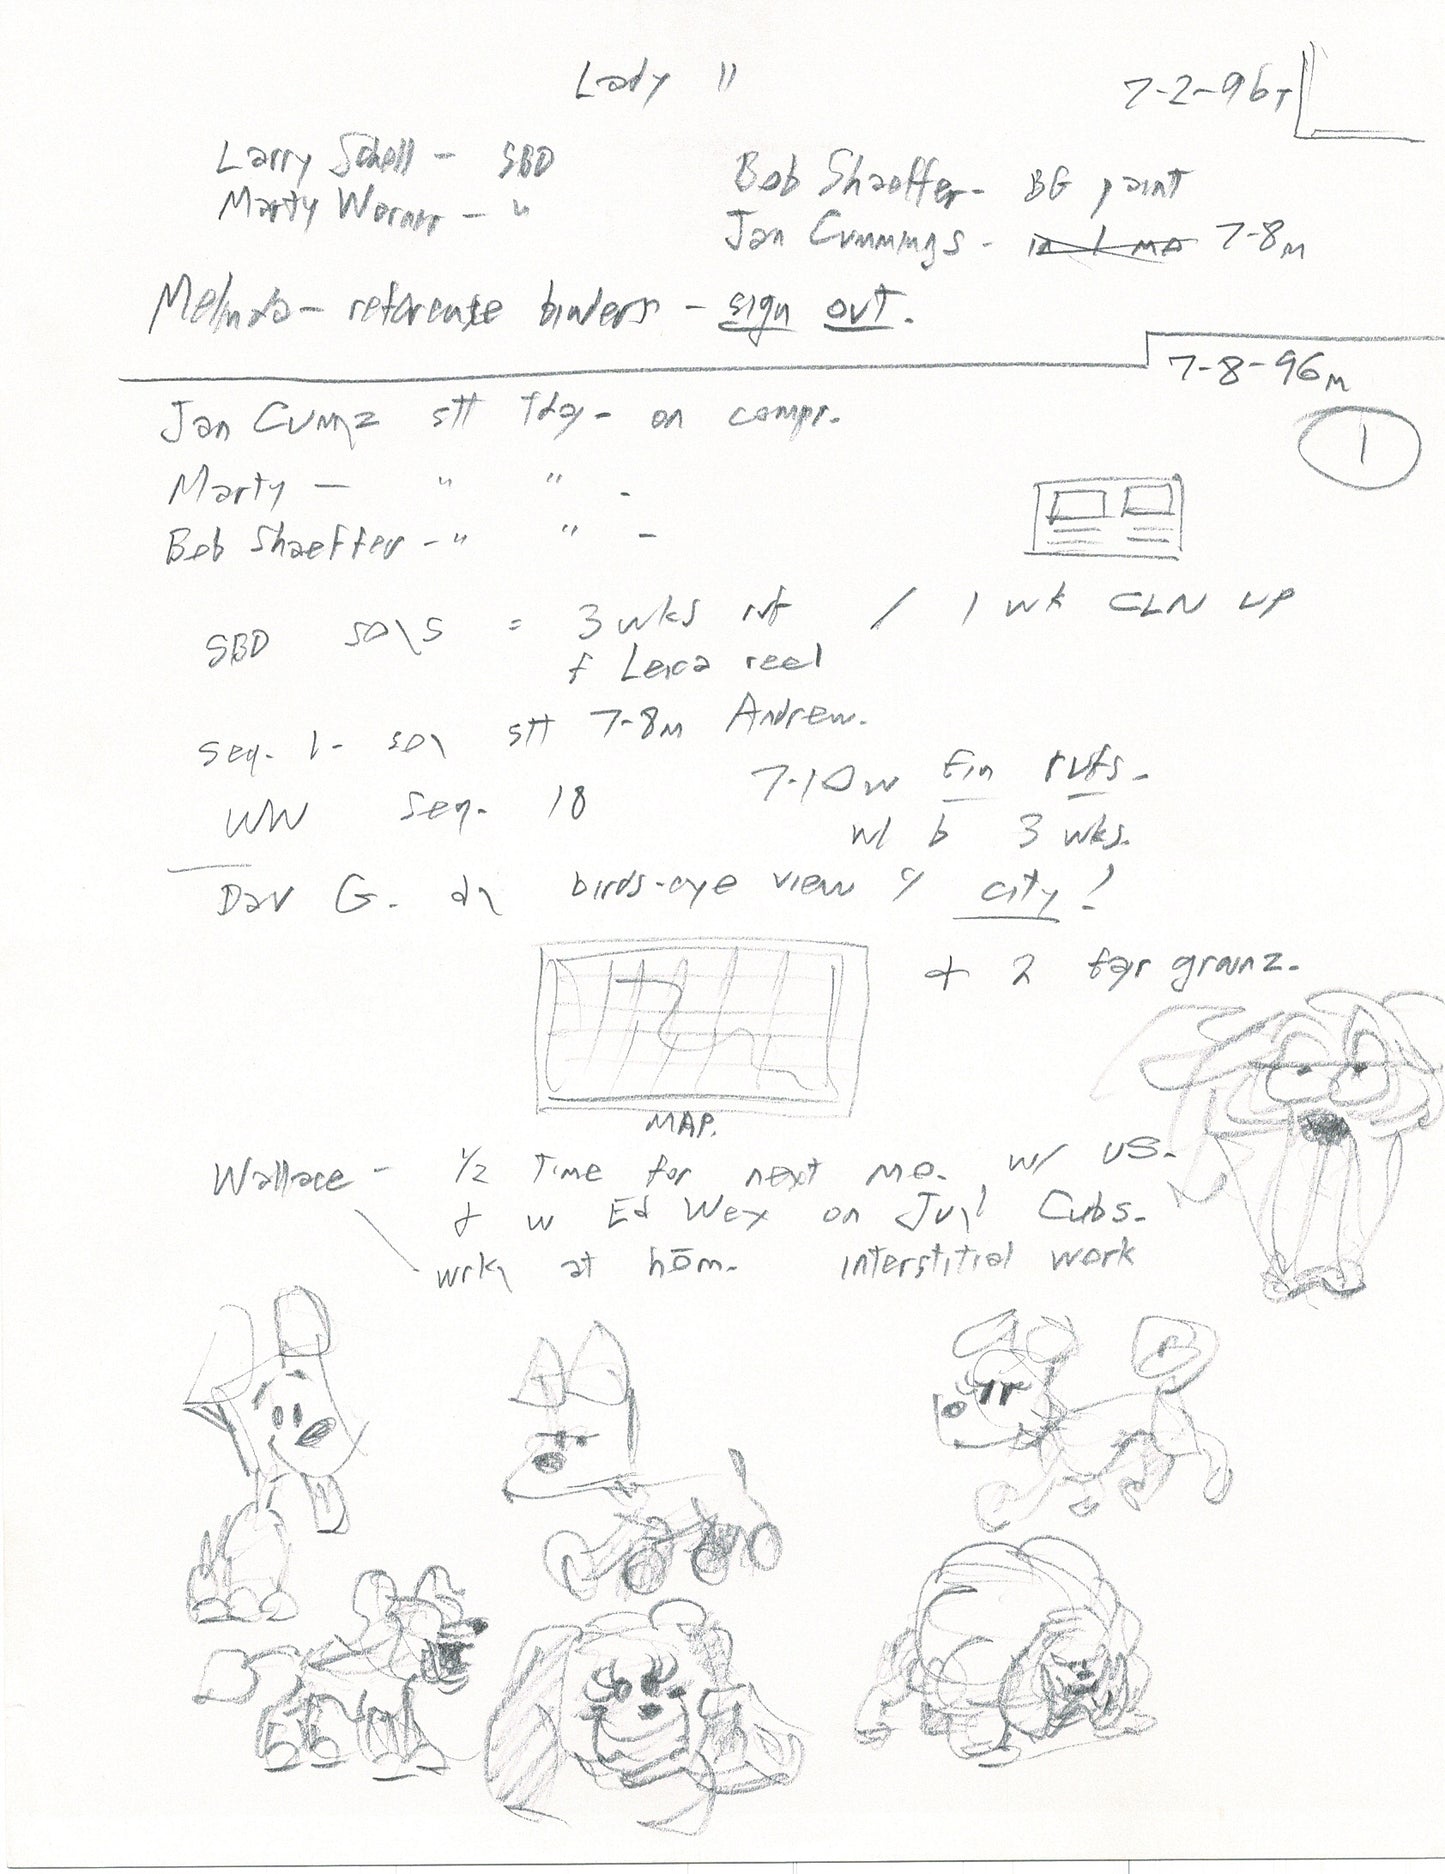 Lady "
7-2-96T
Larry Scholl - SBD
Marty Warner - "
Bob Shaeffer - BG paint
Jan Cummings - 7-8M
Melinda - reference binders - sign out.
7-8-96M
1
Jan Cumgz stt Tday - on compr.
Marty - " " -
Bob Shaeffer - " " -
SBD = 3 wks ruf / 1 wk CLN UP
+ Leica reel
Seq. 1 - stt 7-8M Andrew.
WW Seq. 18
7-10w Fin rufs -
w/ b 3 wks.
Dav G. birds-eye view of city!
+ 2 fayr grounz.
MAP.
Wallace - 1/2 Time for next mo. w/ US.
+ w Ed Wex on Jugl Cubs.
wrkg at hōm. interstitial work